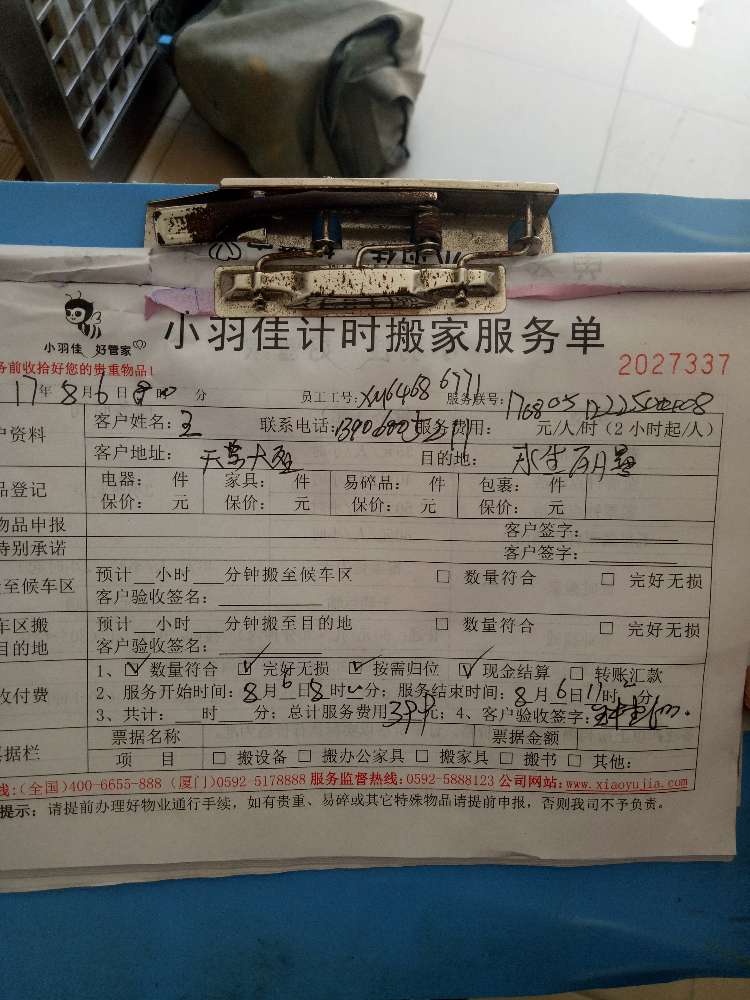 小羽佳 好管家
小羽佳计时搬家服务单
2027337
务前收拾好您的贵重物品!
17年8月6日 时 分 员工工号: 服务联号:
户资料 客户姓名:王 联系电话: 服务费用: 元/人/时(2小时起/人)
客户地址: 目的地:
品登记 电器: 件 家具: 件 易碎品: 件 包裹: 件
保价: 元 保价: 元 保价: 元 保价: 元
物品申报 客户签字:
特别承诺 客户签字:
至候车区 预计__小时___分钟搬至候车区 □ 数量符合 □ 完好无损
客户验收签名:
车区搬 预计__小时___分钟搬至目的地 □ 数量符合 □ 完好无损
目的地 客户验收签名:
收付费 1、☑数量符合 ☑完好无损 ☑按需归位 ☑现金结算 □ 转账汇款
2、服务开始时间:8月6日8时 分;服务结束时间:8月6日17时 分
3、共计:__时___分;总计服务费用 元;4、客户验收签字:
票据栏 票据名称 票据金额
项 目 □ 搬设备 □ 搬办公家具 □ 搬家具 □ 搬书 □ 其他:
线:(全国)400-6655-888 (厦门)0592-5178888 服务监督热线:0592-5888123 公司网站:www.xiaoyujia.com
提示:请提前办理好物业通行手续,如有贵重、易碎或其它特殊物品请提前申报,否则我司不予负责。